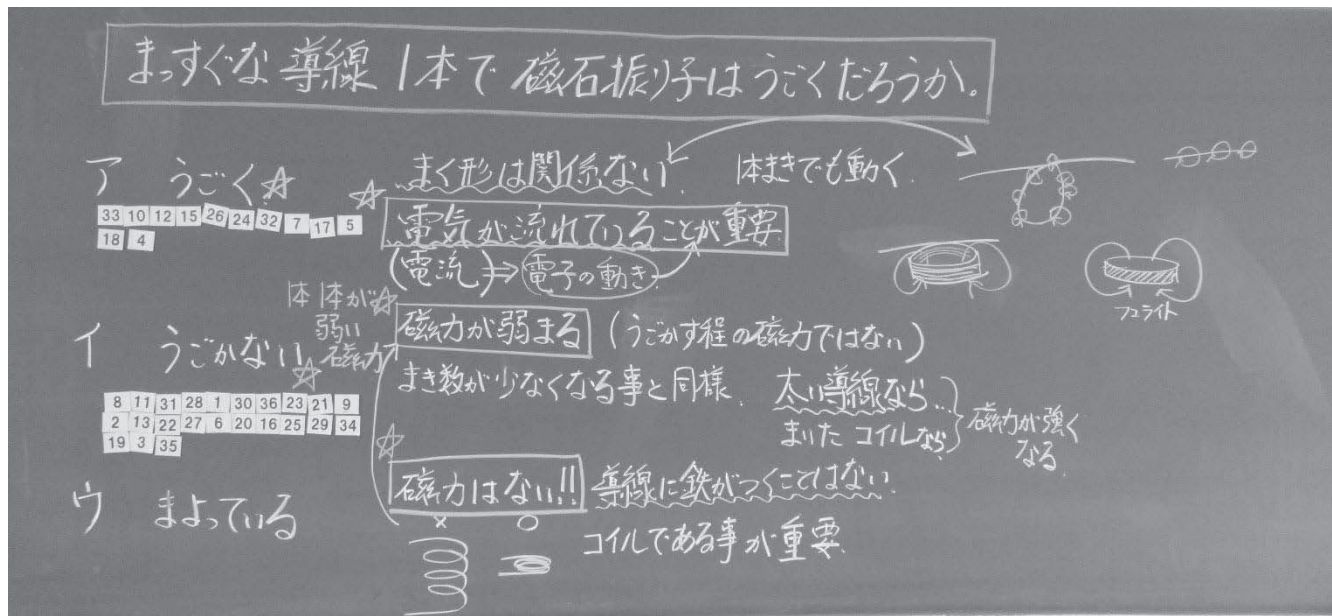 まっすぐな導線1本で磁石振り子はうごくだろうか。
ア うごく☆
33 10 12 15 26 24 32 7 17 5
18 4
☆まく形は関係ない。 1本まきでも動く。
電気が流れていることが重要
(電流)⇒電子の動き
フェライト
イ うごかない☆
8 11 31 28 1 30 36 23 21 9
2 13 22 27 6 20 16 25 29 34
19 3 35
弱い
磁力
☆
磁力が弱まる (うごかす程の磁力ではない)
まき数が少なくなる事と同様。
太い導線なら…
まいたコイルなら
磁力が強く
なる。
☆
磁力はない!! 導線に鉄がつくことはない
× ○
コイルである事が重要。
ウ まよっている